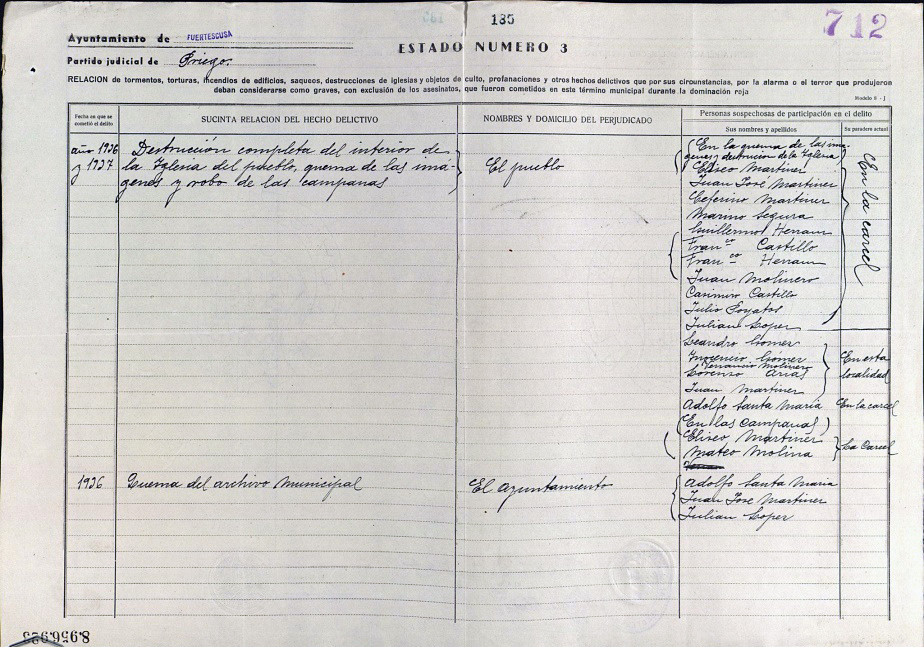 135
712
Ayuntamiento de FUERTESCUSA
ESTADO NUMERO 3
Partido judicial de Priego.
RELACION de tormentos, torturas, incendios de edificios, saqueos, destrucciones de iglesias y objetos de culto, profanaciones y otros hechos delictivos que por sus circunstancias, por la alarma o el terror que produjeron
deban considerarse como graves, con exclusión de los asesinatos, que fueron cometidos en este término municipal durante la dominación roja
Modelo 8 - j
Fecha en que se cometió el delito
SUCINTA RELACION DEL HECHO DELICTIVO
NOMBRES Y DOMICILIO DEL PERJUDICADO
Personas sospechosas de participación en el delito
Sus nombres y apellidos
Su paradero actual
año 1936
y 1937
Destrucción completa del interior de
la Yglesia del pueblo, quema de las imá-
genes y robo de las campanas
El pueblo
(En la quema de las imá-
genes y destrucion de la Yglesia)
Eliseo Martinez
Juan José Martinez
Ceferino Martinez
Marino Segura
Guillermo Herraiz
Franco Castillo
Franco Herraiz
Juan Molinero
Casimiro Castillo
Julio Poyatos
Julian Lopez
En la carcel
Leandro Gómez
Inocencio Gómez
Venancio Molinero
Lorenzo Arias
Juan Martinez
En esta
localidad
Adolfo Santa Maria
En la carcel
(En las Campanas)
Eliseo Martinez
Mateo Molina
La Carcel
1936
Quema del archivo municipal
El Ayuntamiento
Adolfo Santa Maria
Juan José Martinez
Julian Lopez